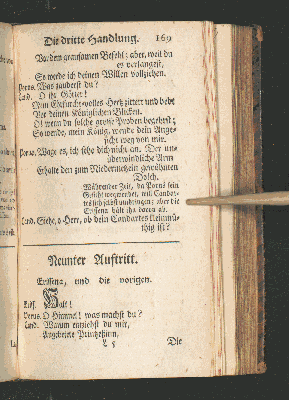 Die dritte Handlung. 169
Vor dem grausamen Befehl; aber, weil du
es verlangest,
So werde ich deinen Willen vollziehen.
Porus. Was zauderst du?
Cand. O ihr Götter!
Mein Ehrfurcht-volles Hertz zittert und bebt
Vor deinen Königlichen Blicken.
O! wenn du solche grosse Proben begehrst;
So wende, mein König, wende dein Ange-
sicht weg von mir.
Porus. Wage es, ich sehe dich nicht an. Der un-
überwindliche Arm
Erhalte den zum Niedermetzeln gewöhnten
Dolch.
Während der Zeit, da Porus sein
Gesicht wegwendet, will Candar-
tes sich selbst umbringen; aber die
Erissena hält ihn davon ab.
Cand. Siehe, o Herr, ob dein Candartes kleinmü-
thig ist?
Neunter Auftritt.
Erissena, und die vorigen.
Halt!
Porus. O Himmel! was machst du?
Cand. Warum entziehst du mir,
Angebetete Printzeßinn,
L 5 Die